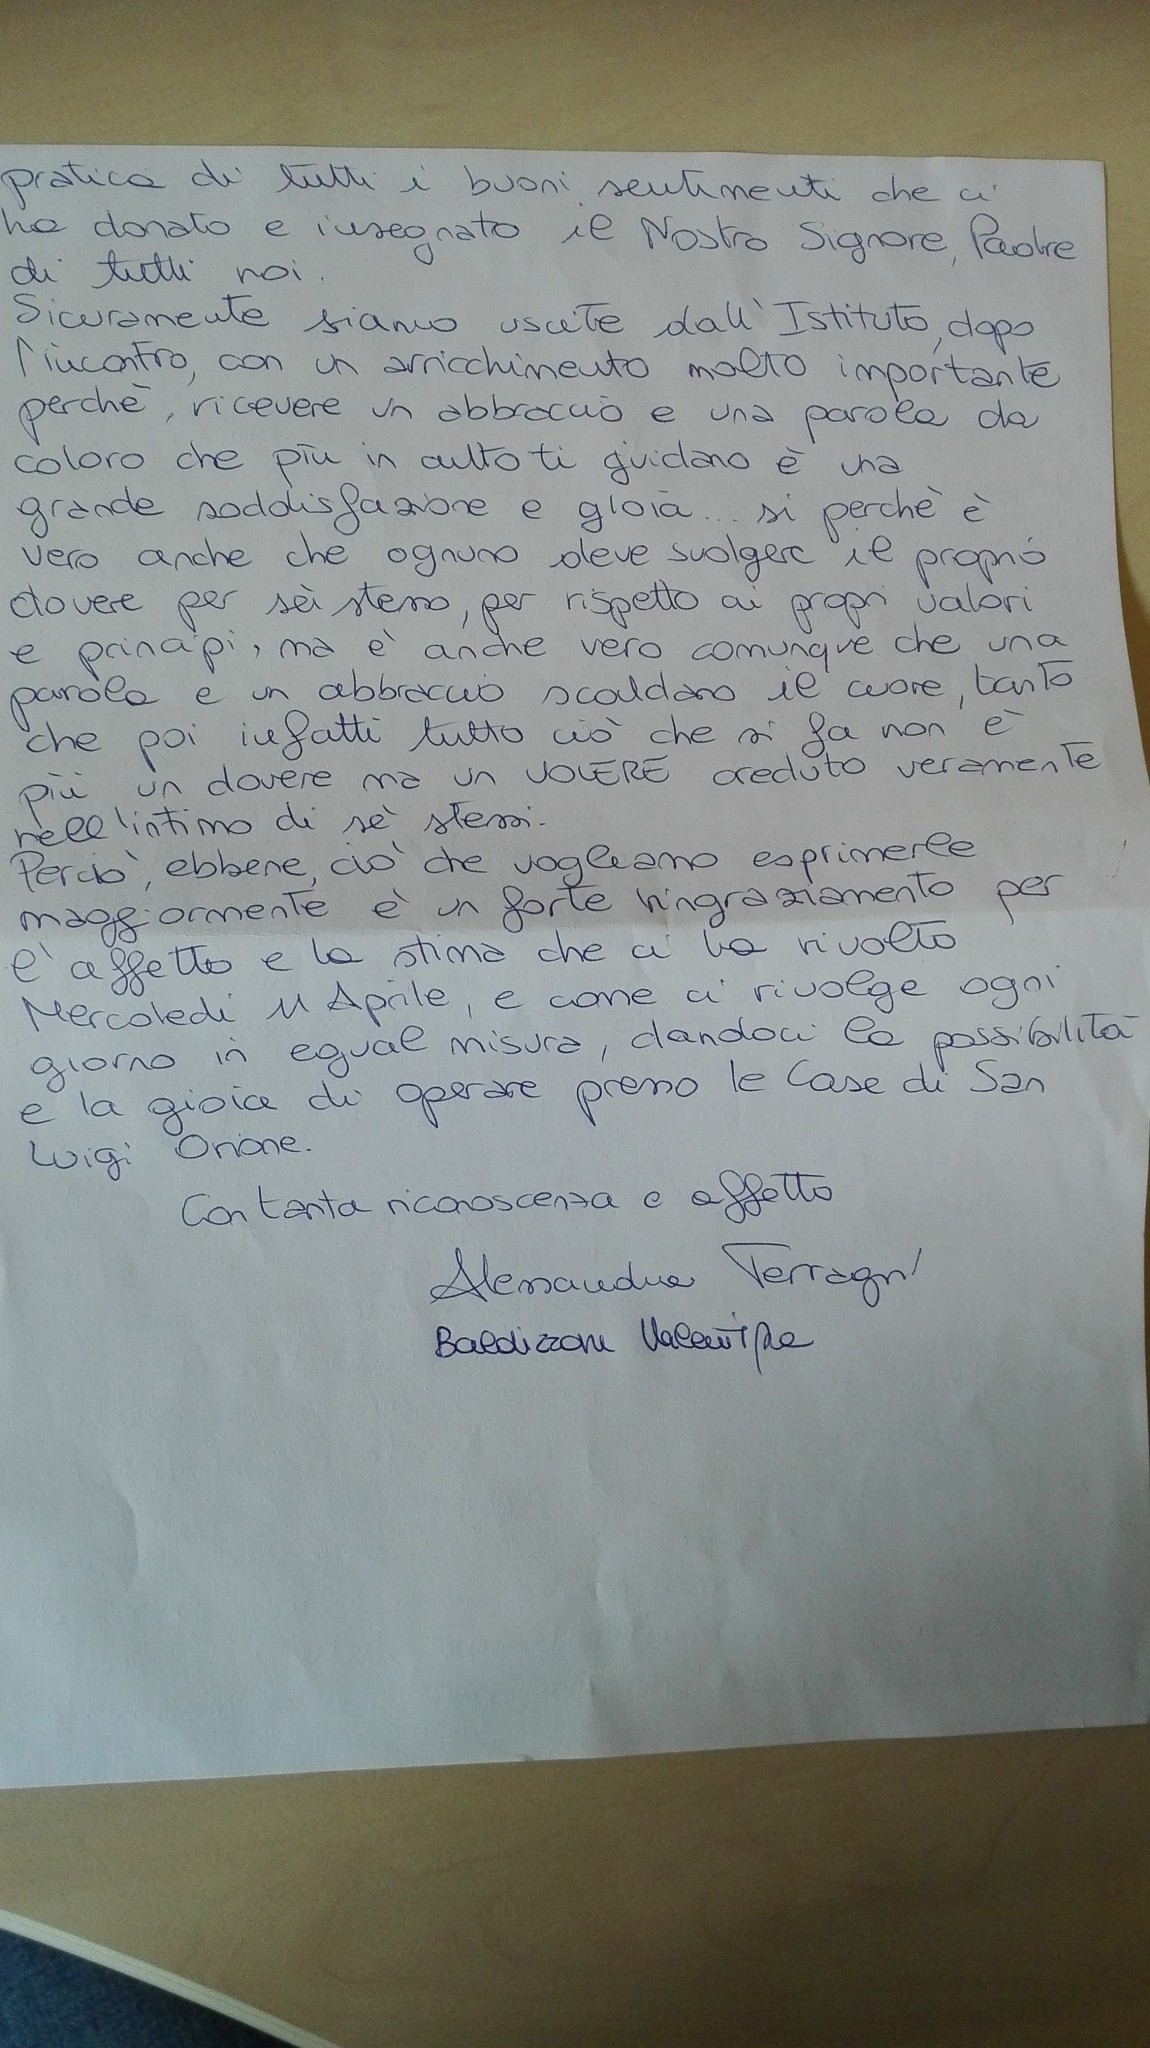 pratica di tutti i buoni sentimenti che ci
ha donato e insegnato il Nostro Signore, Padre
di tutti noi.
Sicuramente siamo uscite dall'Istituto, dopo
l'incontro, con un arricchimento molto importante
perchè, ricevere un abbraccio e una parola da
coloro che più in alto ti guidano è una
grande soddisfazione e gioia... si perchè è
vero anche che ognuno deve svolgere il proprio
dovere per sè stesso, per rispetto ai propri valori
e principi, ma è anche vero comunque che una
parola e un abbraccio scaldano il cuore, tanto
che poi infatti tutto ciò che si fa non è
più un dovere ma un VOLERE creduto veramente
nell'intimo di sè stessi.
Perciò, ebbene, ciò che vogliamo esprimerle
maggiormente è un forte ringraziamento per
l'affetto e la stima che ci ha rivolto
Mercoledì 11 Aprile, e come ci rivolge ogni
giorno in egual misura, dandoci la possibilità
e la gioia di operare presso le Case di San
Luigi Orione.
Con tanta riconoscenza e affetto
Alessandra Terragni
Baldizzoni Valentina